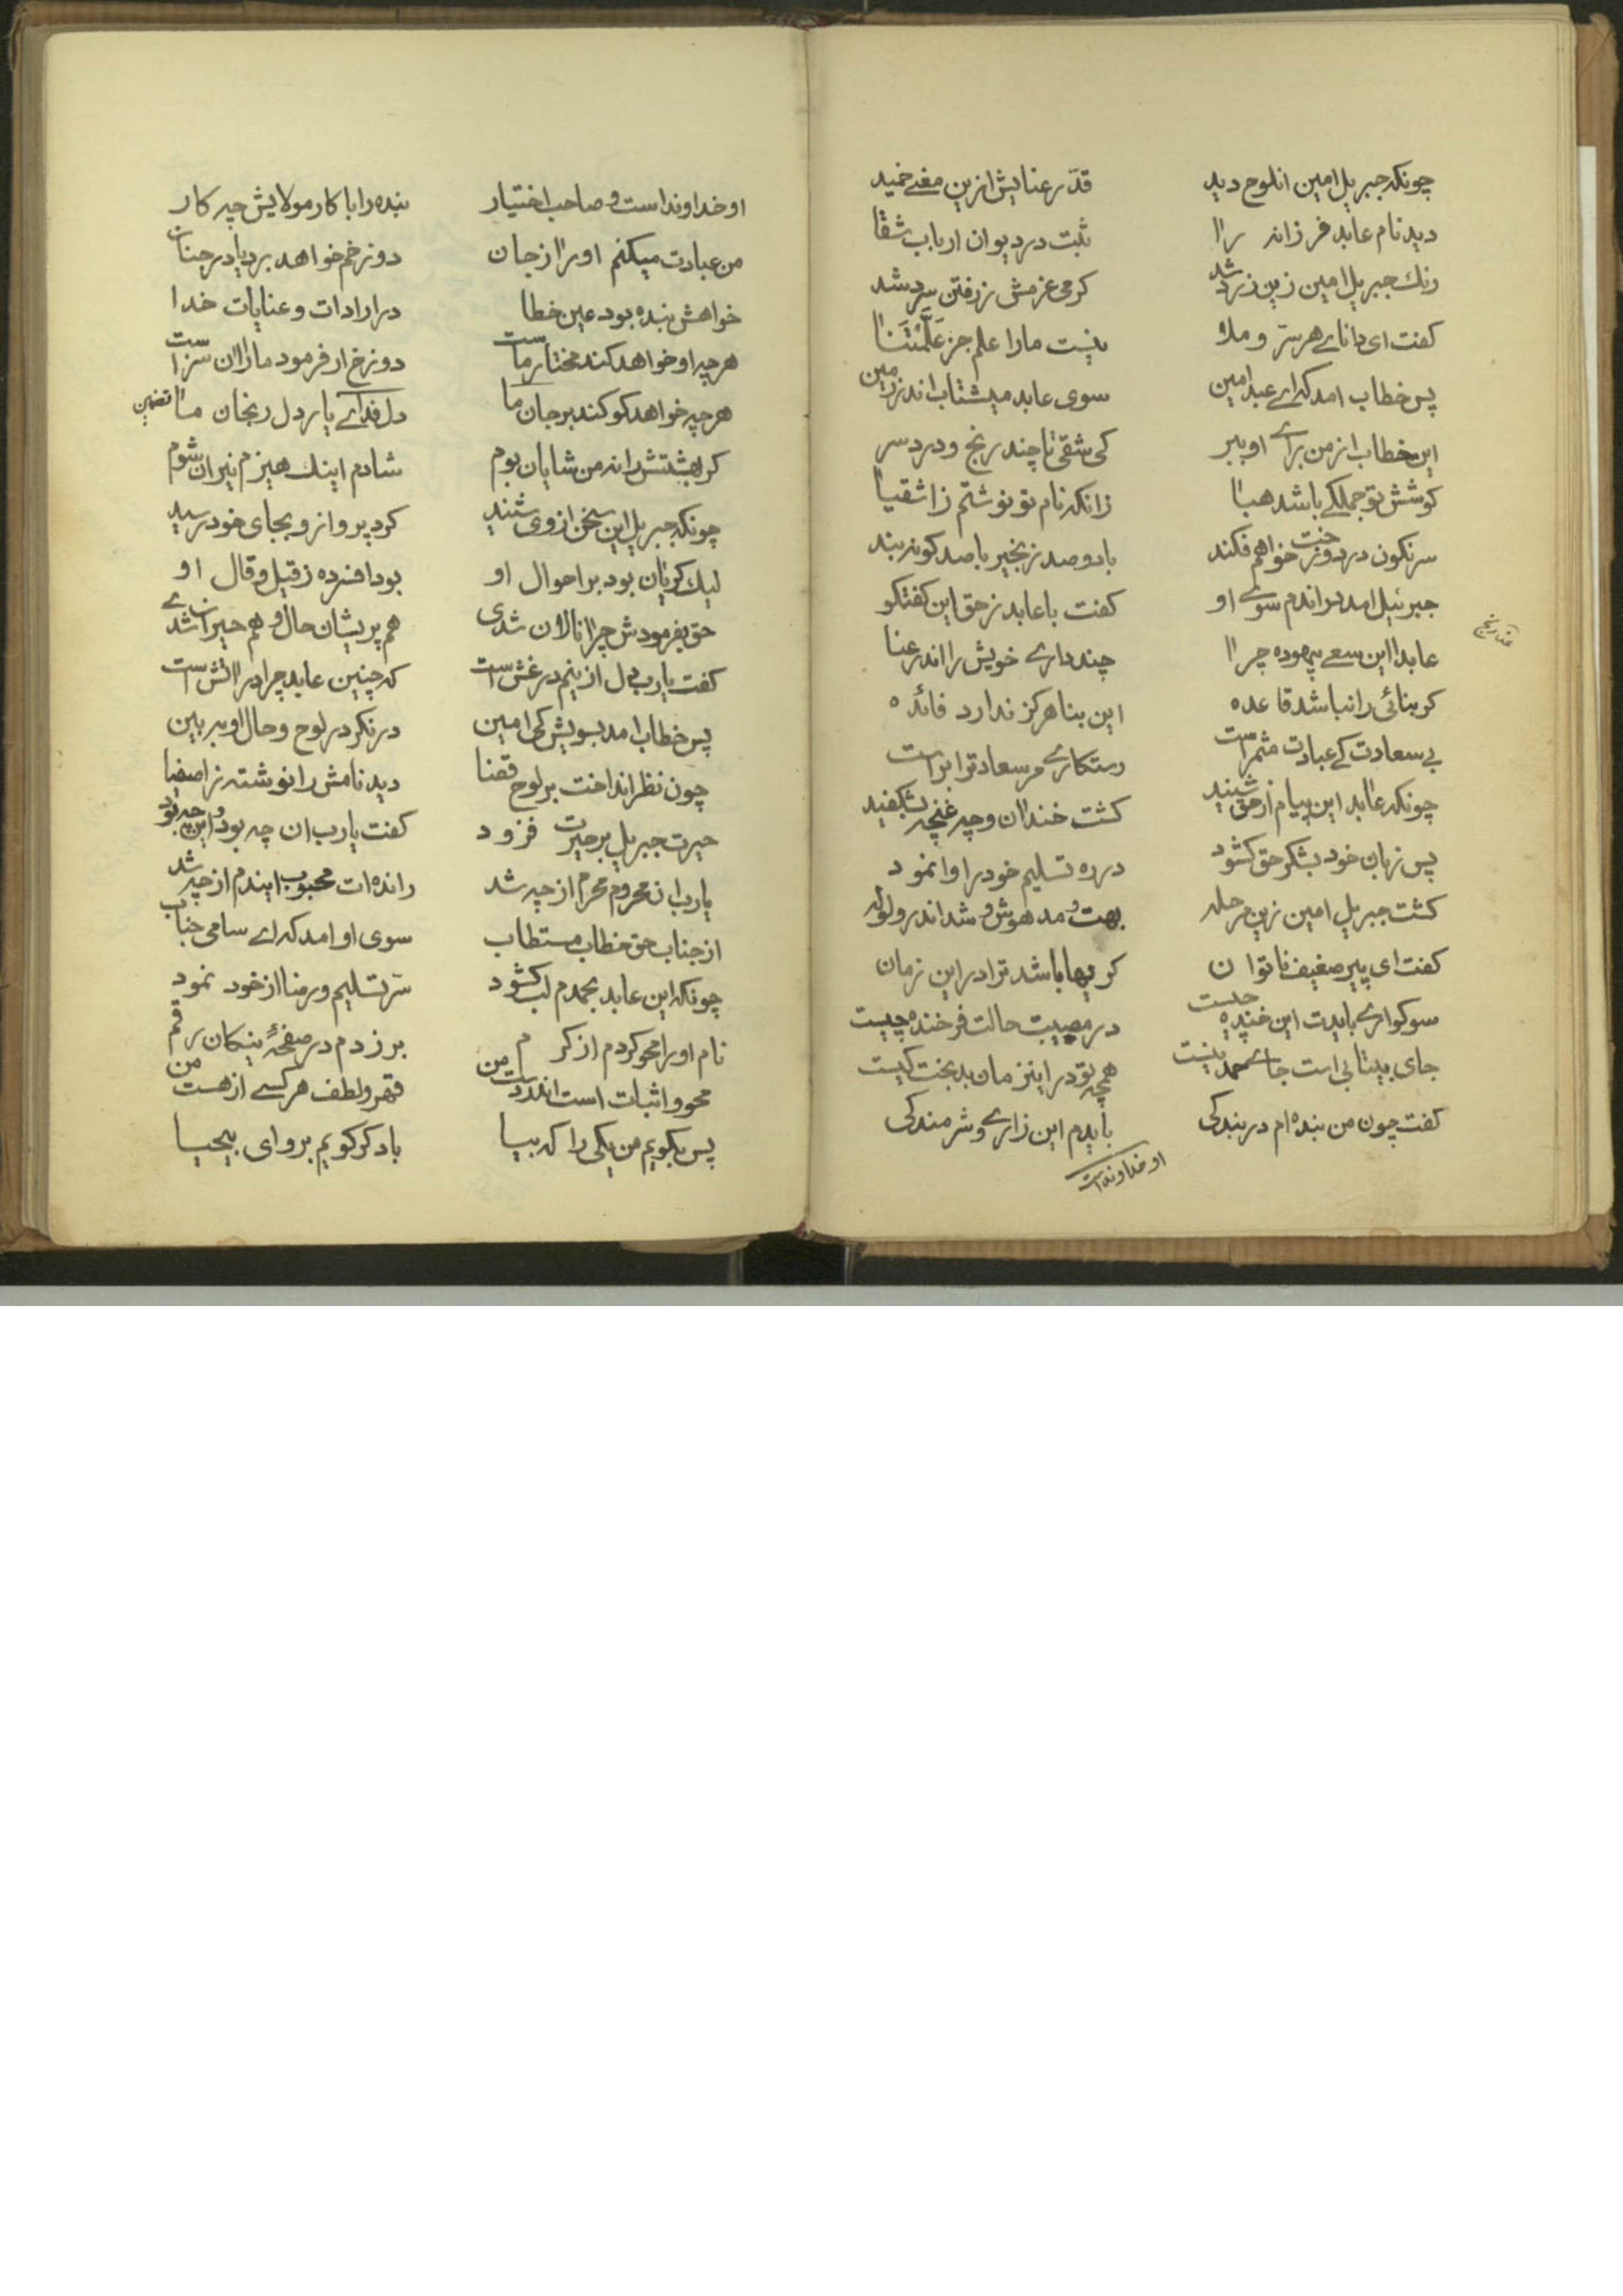 چونکه جبریل امین انلوح دید قد رعنایش ازین معنے خمید
دید نام عابد فرزانه را ثبت در دیوان ارباب شقا
رنك جبریل امین زین زرد شد کرمی عزمش ز رفتن سرد شد
کفت ای داناے هر سرّ و ملا نیست مارا علم جز عَلَّمْتَنا
پس خطاب امد که اے عبد امین سوی عابد میشتاب اندر زمین
این خطاب از من براے او ببر کی شقی تا چند رنج و درد سر
کوشش تو جملکے باشد هبا زانکه نام تو نوشتم ز اشقیا
سرنکون در دوزخت خواهم فکند با دو صد زنجیر با صد کونه بند
جبرئیل امد دراندم سوے او کفت با عابد ز حق این کفتکو
عابدا این سعے بیهوده چرا چند دارے خویش را اندر عنا
عنا رنج
کر بنائی را نباشد قاعده این بنا هرکز ندارد فائده
بے سعادت کے عبادت مثمر است رستکارے مر سعادترا براست
چونکه عابد این پیام از حق شنید کشت خندان و چه غنچه بشکفید
پس زبان خود بشکر حق کشود در ره تسلیم خود را وانمود
کشت جبریل امین زین مرحله بهت و مدهوش و شد اندر ولوله
کفت ای پیر ضعیف ناتوان کر بها باشد ترا در این زمان
سوکوارے بایدت این خنده چیست در مصیبت حالت فرخنده چیست
جای بیتابی است جاے حمد نیست همچه تو در اینزمان بدبخت کیست
کفت چون من بنده ام در بندکی بایدم این زارے و شرمندکی
او خداوند است
او خداوند است و صاحب اختیار بنده را با کار مولایش چه کار
من عبادت میکنم او را ز جان دوزخم خواهد برد یا در جنان
خواهش بنده بود عین خطا در ارادات و عنایات خدا
هرچه او خواهد کند مختار ماست دوزخ ار فرمود مارا ان سزاست
هرچه خواهد کو کند بر جان ما دل فداے یار دل رنجان ما
تضمین
کر بهشتش را نه من شایان بوم شادم اینك هیزم نیران شوم
چونکه جبریل این سخن از وی شنید کرد پرواز و بجای خود رسید
لیك کریان بود بر احوال او بود افسرده ز قیل و قال او
حق بفرمودش چرا نالان شدی هم پریشان حال و هم حیران شدے
کفت یا رب دل از ینم در غش است که چنین عابد چرا در اتش است
پس خطاب امد بسویش کی امین در نکر در لوح و حال او ببین
چون نظر انداخت بر لوح قضا دید نامش را نوشته ز اصفیا
حیرت جبریل بر حیرت فزود کفت یا رب ان چه بود و این چه بود
یا رب ان محروم محرم از چه شد رانده ات محبوب ایندم از چه شد
از جناب حق خطاب مستطاب سوی او امد که اے سامی جناب
چونکه این عابد بحمدم لب کشود سر تسلیم و رضا از خود نمود
نام او را محو کردم از کرم بر زدم در صفحهٔ نیکان رقم
محو و اثبات است اندر دست من قهر و لطف هر کسے از هست من
پس بکویم من یکی را که بیا باد کر کویم برو ای بیحیا